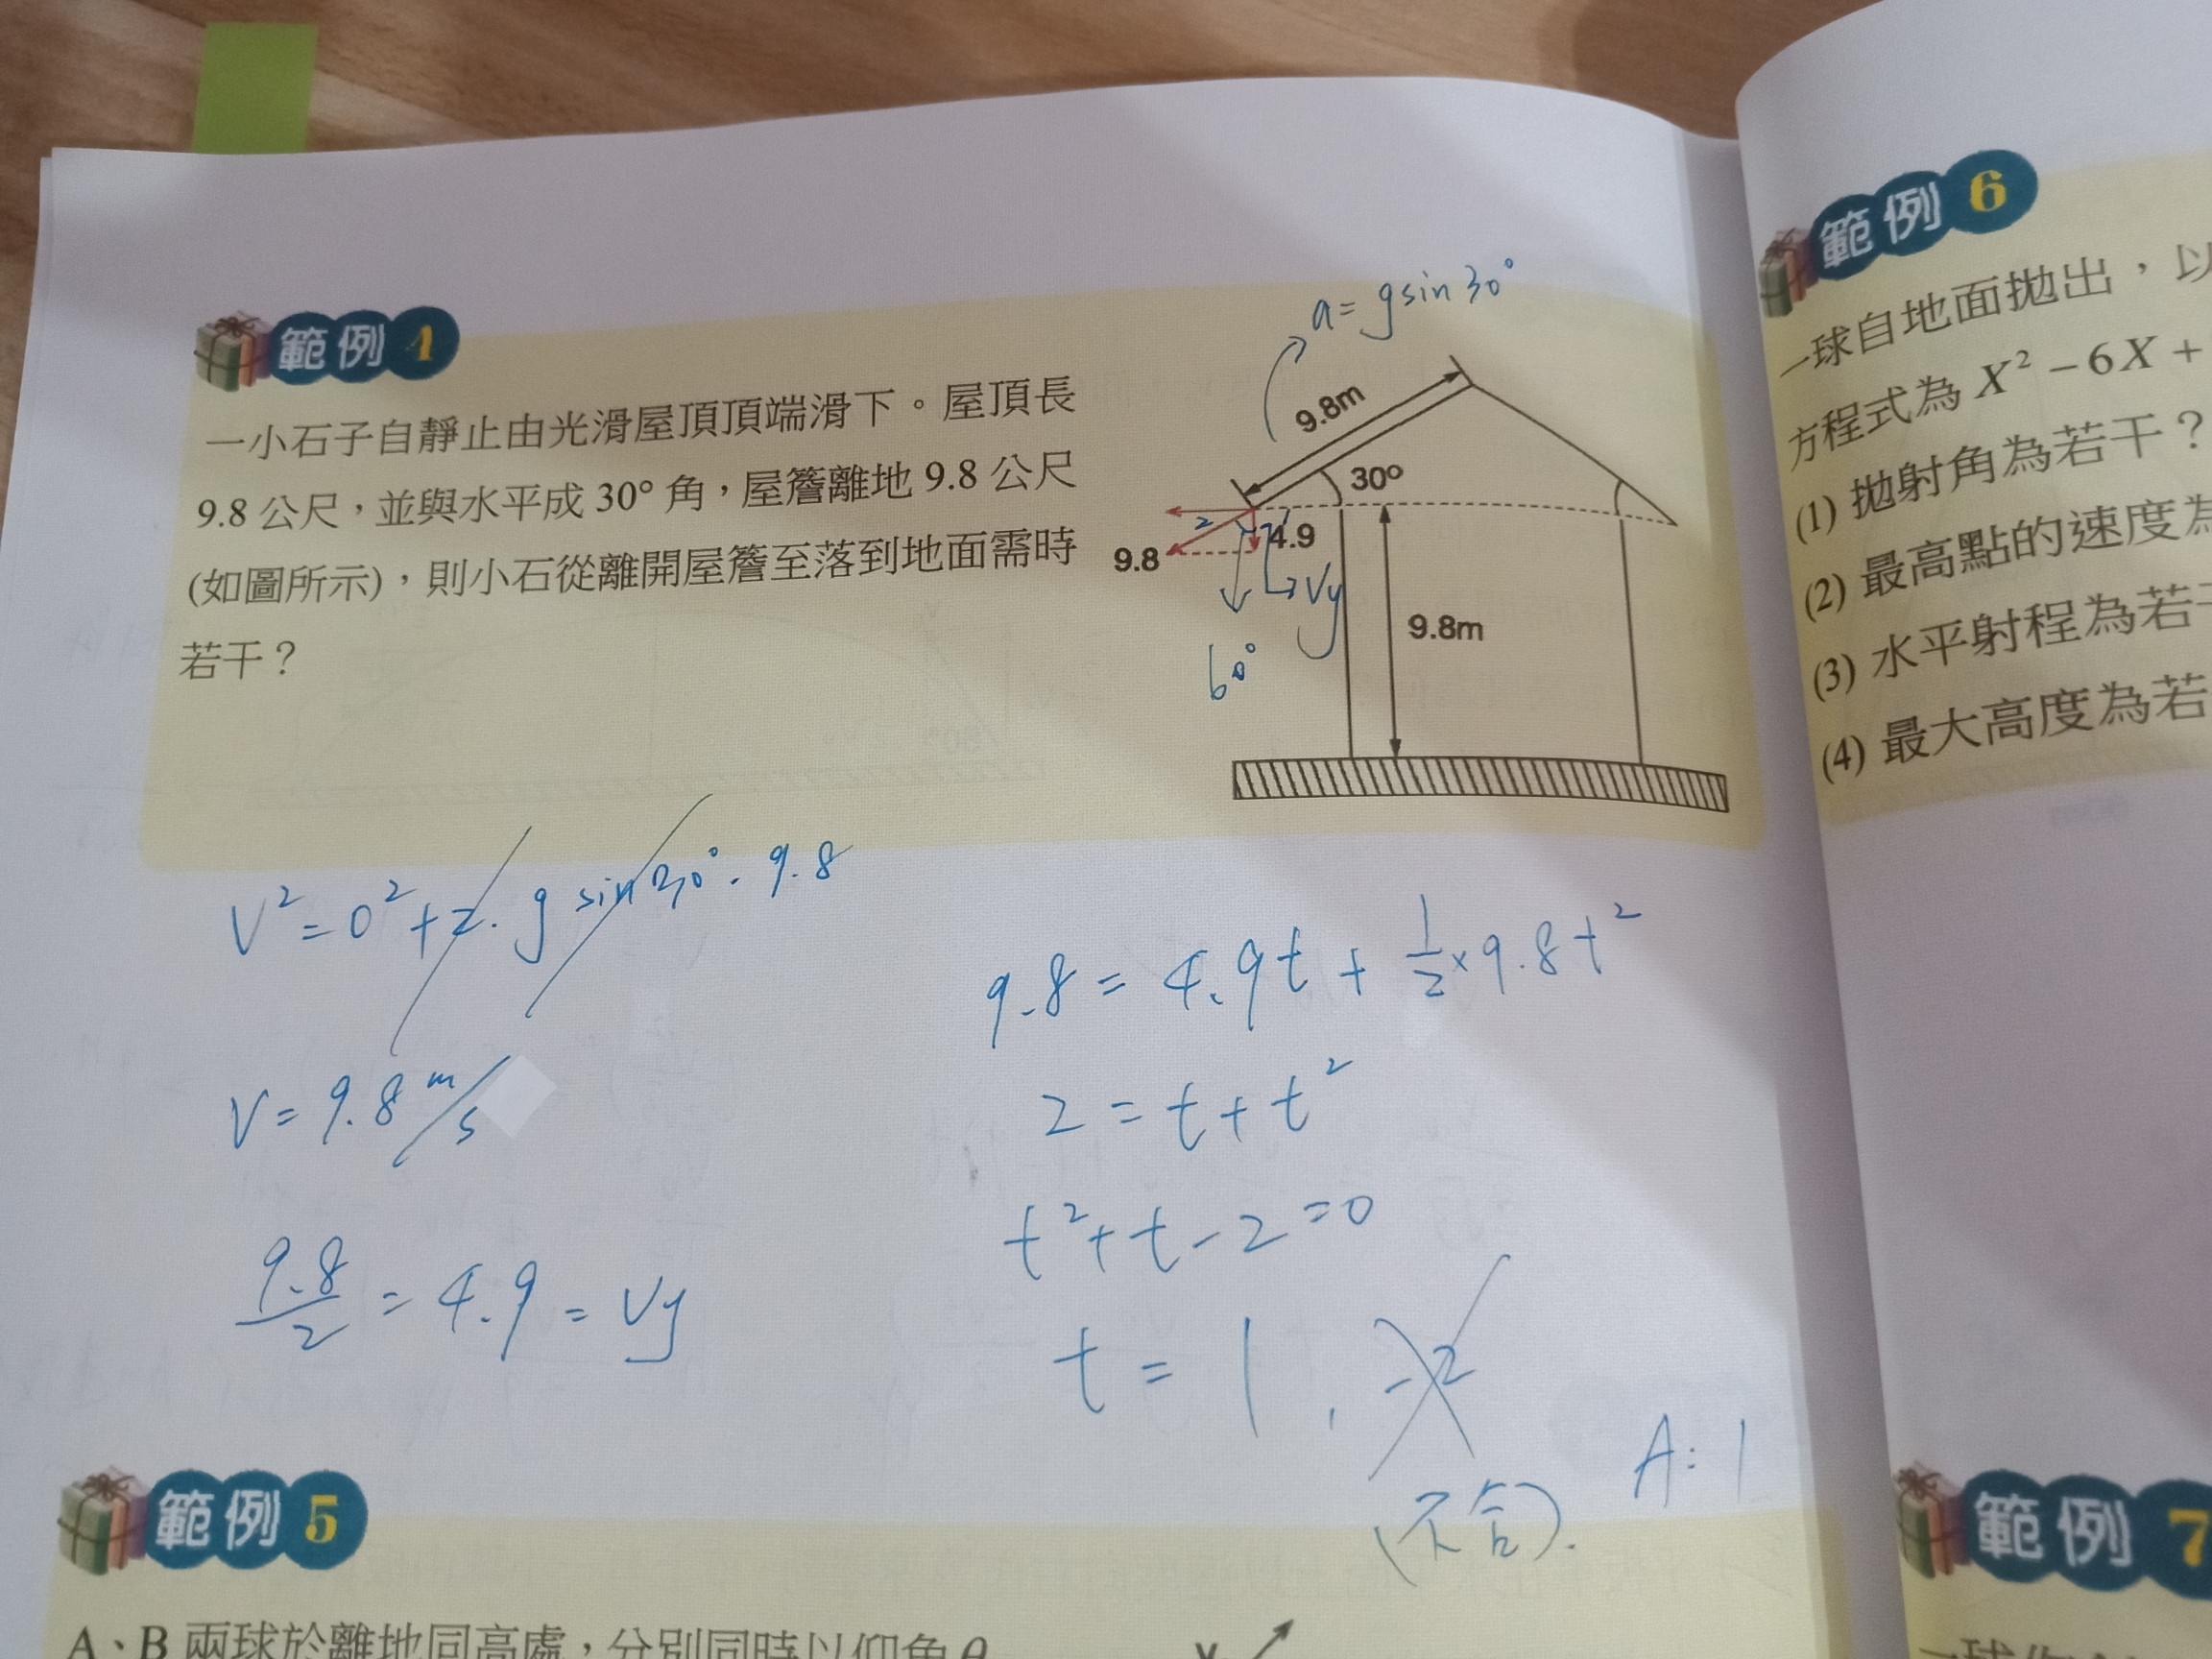 範例 4
一小石子自靜止由光滑屋頂頂端滑下。屋頂長
9.8 公尺，並與水平成 30° 角，屋簷離地 9.8 公尺
(如圖所示)，則小石從離開屋簷至落到地面需時
若干？
a = g sin 30°
9.8m
30°
2
1
4.9
9.8
Vy
60°
9.8m
V² = 0² + 2 · g sin 30° · 9.8
V = 9.8 m/s
9.8/2 = 4.9 = Vy
9.8 = 4.9t + 1/2 × 9.8t²
2 = t + t²
t² + t - 2 = 0
t = 1 , -2
(不合).
A: 1
範例 5
A、B 兩球於離地同高處，分別同時以仰角 θ
範例 6
一球自地面拋出，以
方程式為 X² − 6X +
(1) 拋射角為若干？
(2) 最高點的速度為
(3) 水平射程為若干
(4) 最大高度為若
範例 7
一球